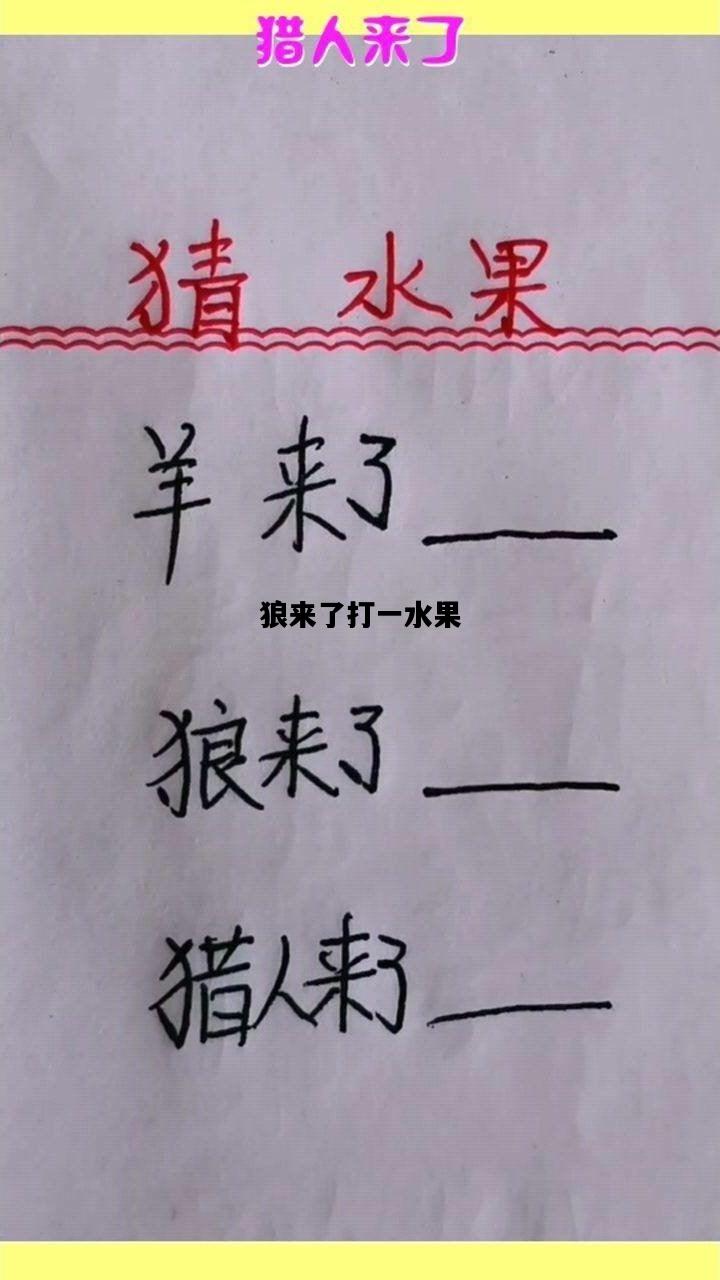 猎人来了
猜 水果
羊来了
狼来了打一水果
狼来了
猎人来了